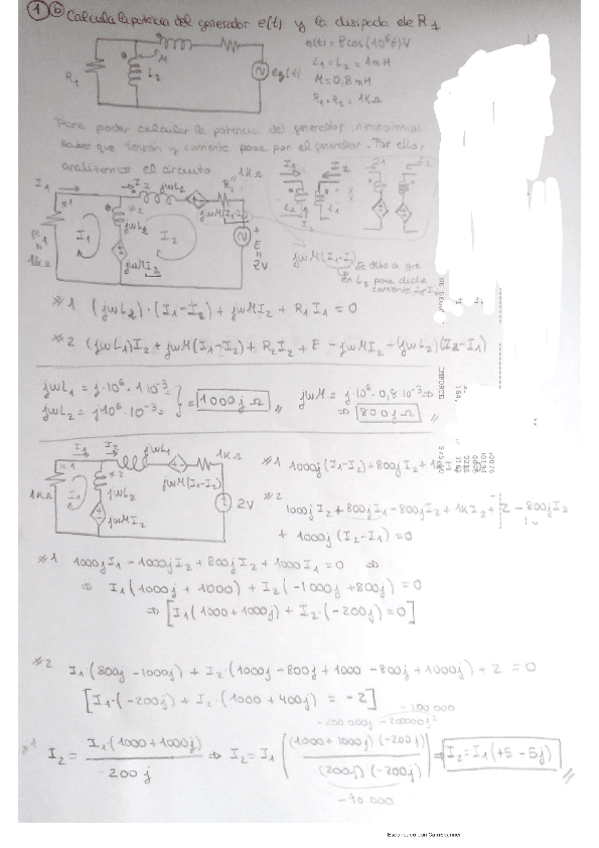 1 b Calcula la potencia del generador e(t) y la disipada de R1
e(t) = 2cos(10⁶t)V
L1 = L2 = 1mH
M = 0,8mH
R1 = R2 = 1KΩ
R1
M
L2
eg(t)
Para poder calcular la potencia del generador necesitamos
saber que tensión y corriente pasa por el generador. Por ello,
analizamos el circuito
I1 *1 I2 jwL1 R2 1KΩ
jwM(I1-I2)
R1 1KΩ I1 *2 jwL2 I2 jwMI2 + E 2V
I1 I2 L1 L2
jwM(I1-I2)
se debe a que
en L2 pasa dicha
corriente
*1 (jwL2)·(I1-I2) + jwMI2 + R1I1 = 0
*2 (jwL1)I2 + jwM(I1-I2) + R2I2 + E - jwMI2 - (jwL2)(I2-I1)
jwL1 = j·10⁶·1·10⁻³ =
jwL2 = j10⁶·10⁻³ = } = 1000j Ω
jwM = j·10⁶·0,8·10⁻³ ⇒
⇒ 800j Ω
I1 I2 jwL1 1KΩ
jwM(I1-I2)
1KΩ I1 *1 *2 jwL2 jwMI2 2V
*1 1000j(I1-I2) + 800jI2 + 1K I1
*2
1000jI2 + 800jI1 - 800jI2 + 1KI2 + 2 - 800jI2
+ 1000j(I2-I1) = 0
*1 1000jI1 - 1000jI2 + 800jI2 + 1000I1 = 0 ⇒
⇒ I1(1000j + 1000) + I2(-1000j + 800j) = 0
⇒ [I1(1000 + 1000j) + I2·(-200j) = 0]
*2 I1·(800j - 1000j) + I2·(1000j - 800j + 1000 - 800j + 1000j) + 2 = 0
[I1·(-200j) + I2·(1000 + 400j) = -2]
-200.000j - 200000j²
*1 I2 = I1·(1000 + 1000j) / 200j ⇒ I2 = I1 ((1000 + 1000j)(-200j) / (200j)(-200j)) = I2 = I1(+5 - 5j)
Escaneado con CamScanner